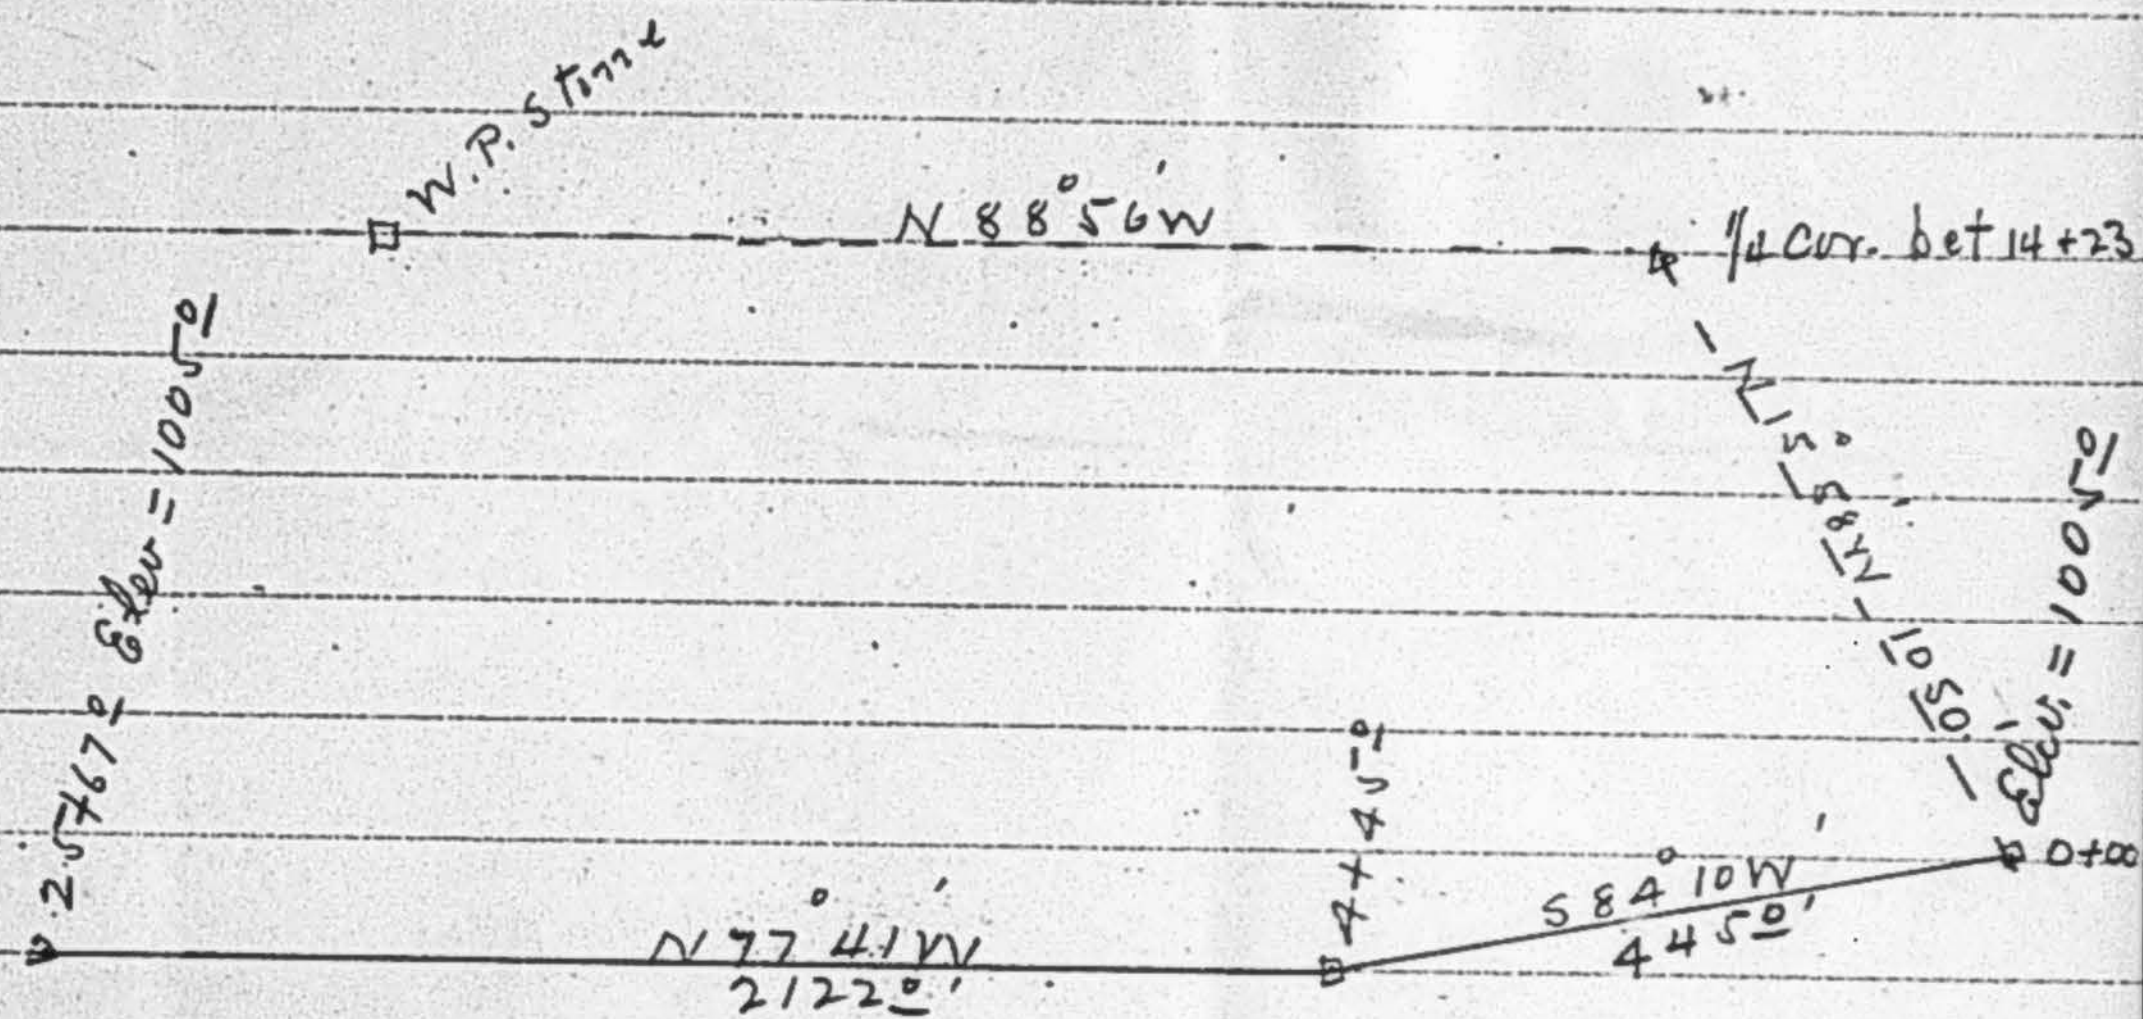 W.P. Stone
N 88° 56' W
1/4 Cor. bet 14 + 23
Elev = 100 5 0
N 15° 58' W - 1050'
Elev. = 100 5 0
25+67 0
4+45 0
0+00
S 84° 10' W
445 0'
N 77° 41' W
2122 0'